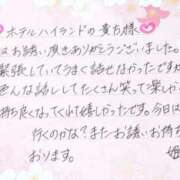 ホテルハイランドの貴方様
はお誘い頂きありがとうございました。
緊張していてうまく話せなかったですが
色んな話ししてたくさん笑って楽しか
持ち良くなってくれて嬉しかったです。今日は
行くのかな？またお誘いお待ち
おります。